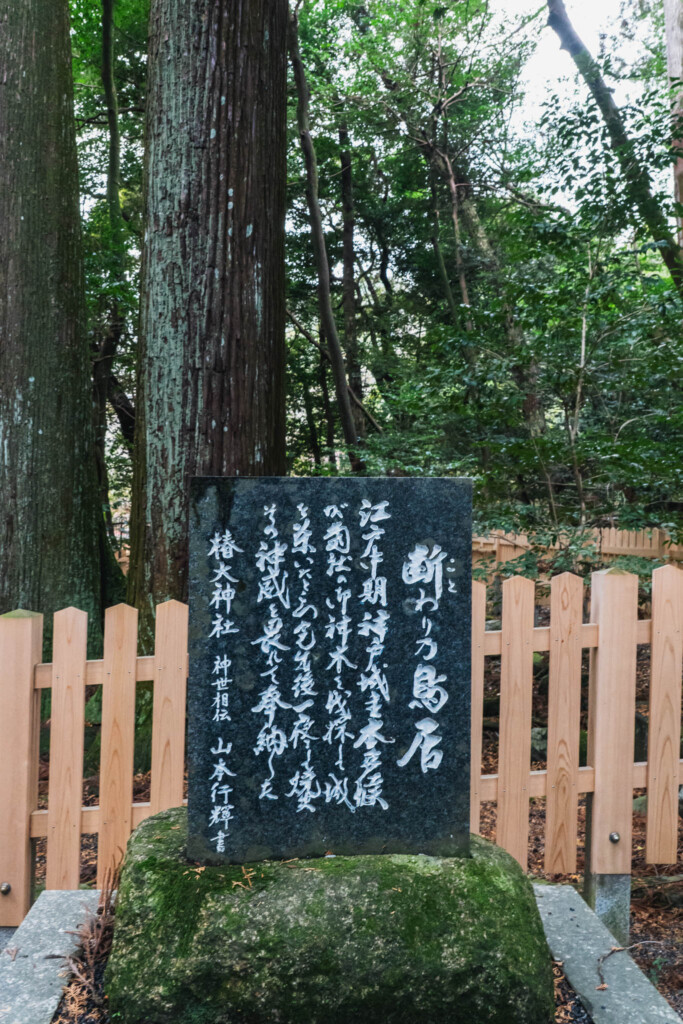 断わり乃鳥居
こと
江戸中期神戸城主本多侯
が当社の御神木を伐採し城
を築いたところ完成後一夜焼失
その神威を畏れて奉納した
椿大神社 神世相伝 山本行輝書